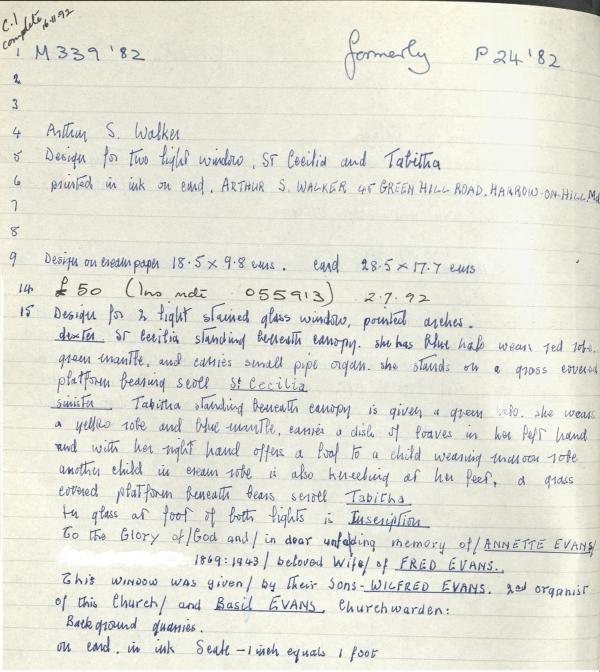 C.1
complete 16.11.92
1 M 339 '82 formerly P 24 '82
2
3
4 Arthur S. Walker
5 Design for two light window, St Cecilia and Tabitha
6 printed in ink on card. ARTHUR S. WALKER 45 GREEN HILL ROAD. HARROW-ON-HILL. Md
7
8
9 Design on cream paper 18.5 x 9.8 cms. card 28.5 x 17.7 cms
14 £50 (Ins note 055913) 2.7.92
15 Design for 2 light stained glass window, pointed arches.
dexter St Cecilia standing beneath canopy. she has blue halo wears red robe.
green mantle, and carries small pipe organ. she stands on a grass covered
platform bearing scroll St Cecilia
sinister Tabitha standing beneath canopy is given a green halo. she wears
a yellow robe and blue mantle, carries a dish of loaves in her left hand
and with her right hand offers a loaf to a child wearing maroon robe
another child in cream robe is also kneeling at her feet, a grass
covered platform beneath bears scroll Tabitha
In glass at foot of both lights is Inscription
To the Glory of/God and/in dear unfading memory of/ANNETTE EVANS/
1869:1943/beloved Wife/of FRED EVANS.
This window was given/by their sons-WILFRED EVANS. 2nd organist
of this Church/and Basil EVANS Churchwarden:
Background quarries.
on card. in ink Scale - 1 inch equals 1 foot